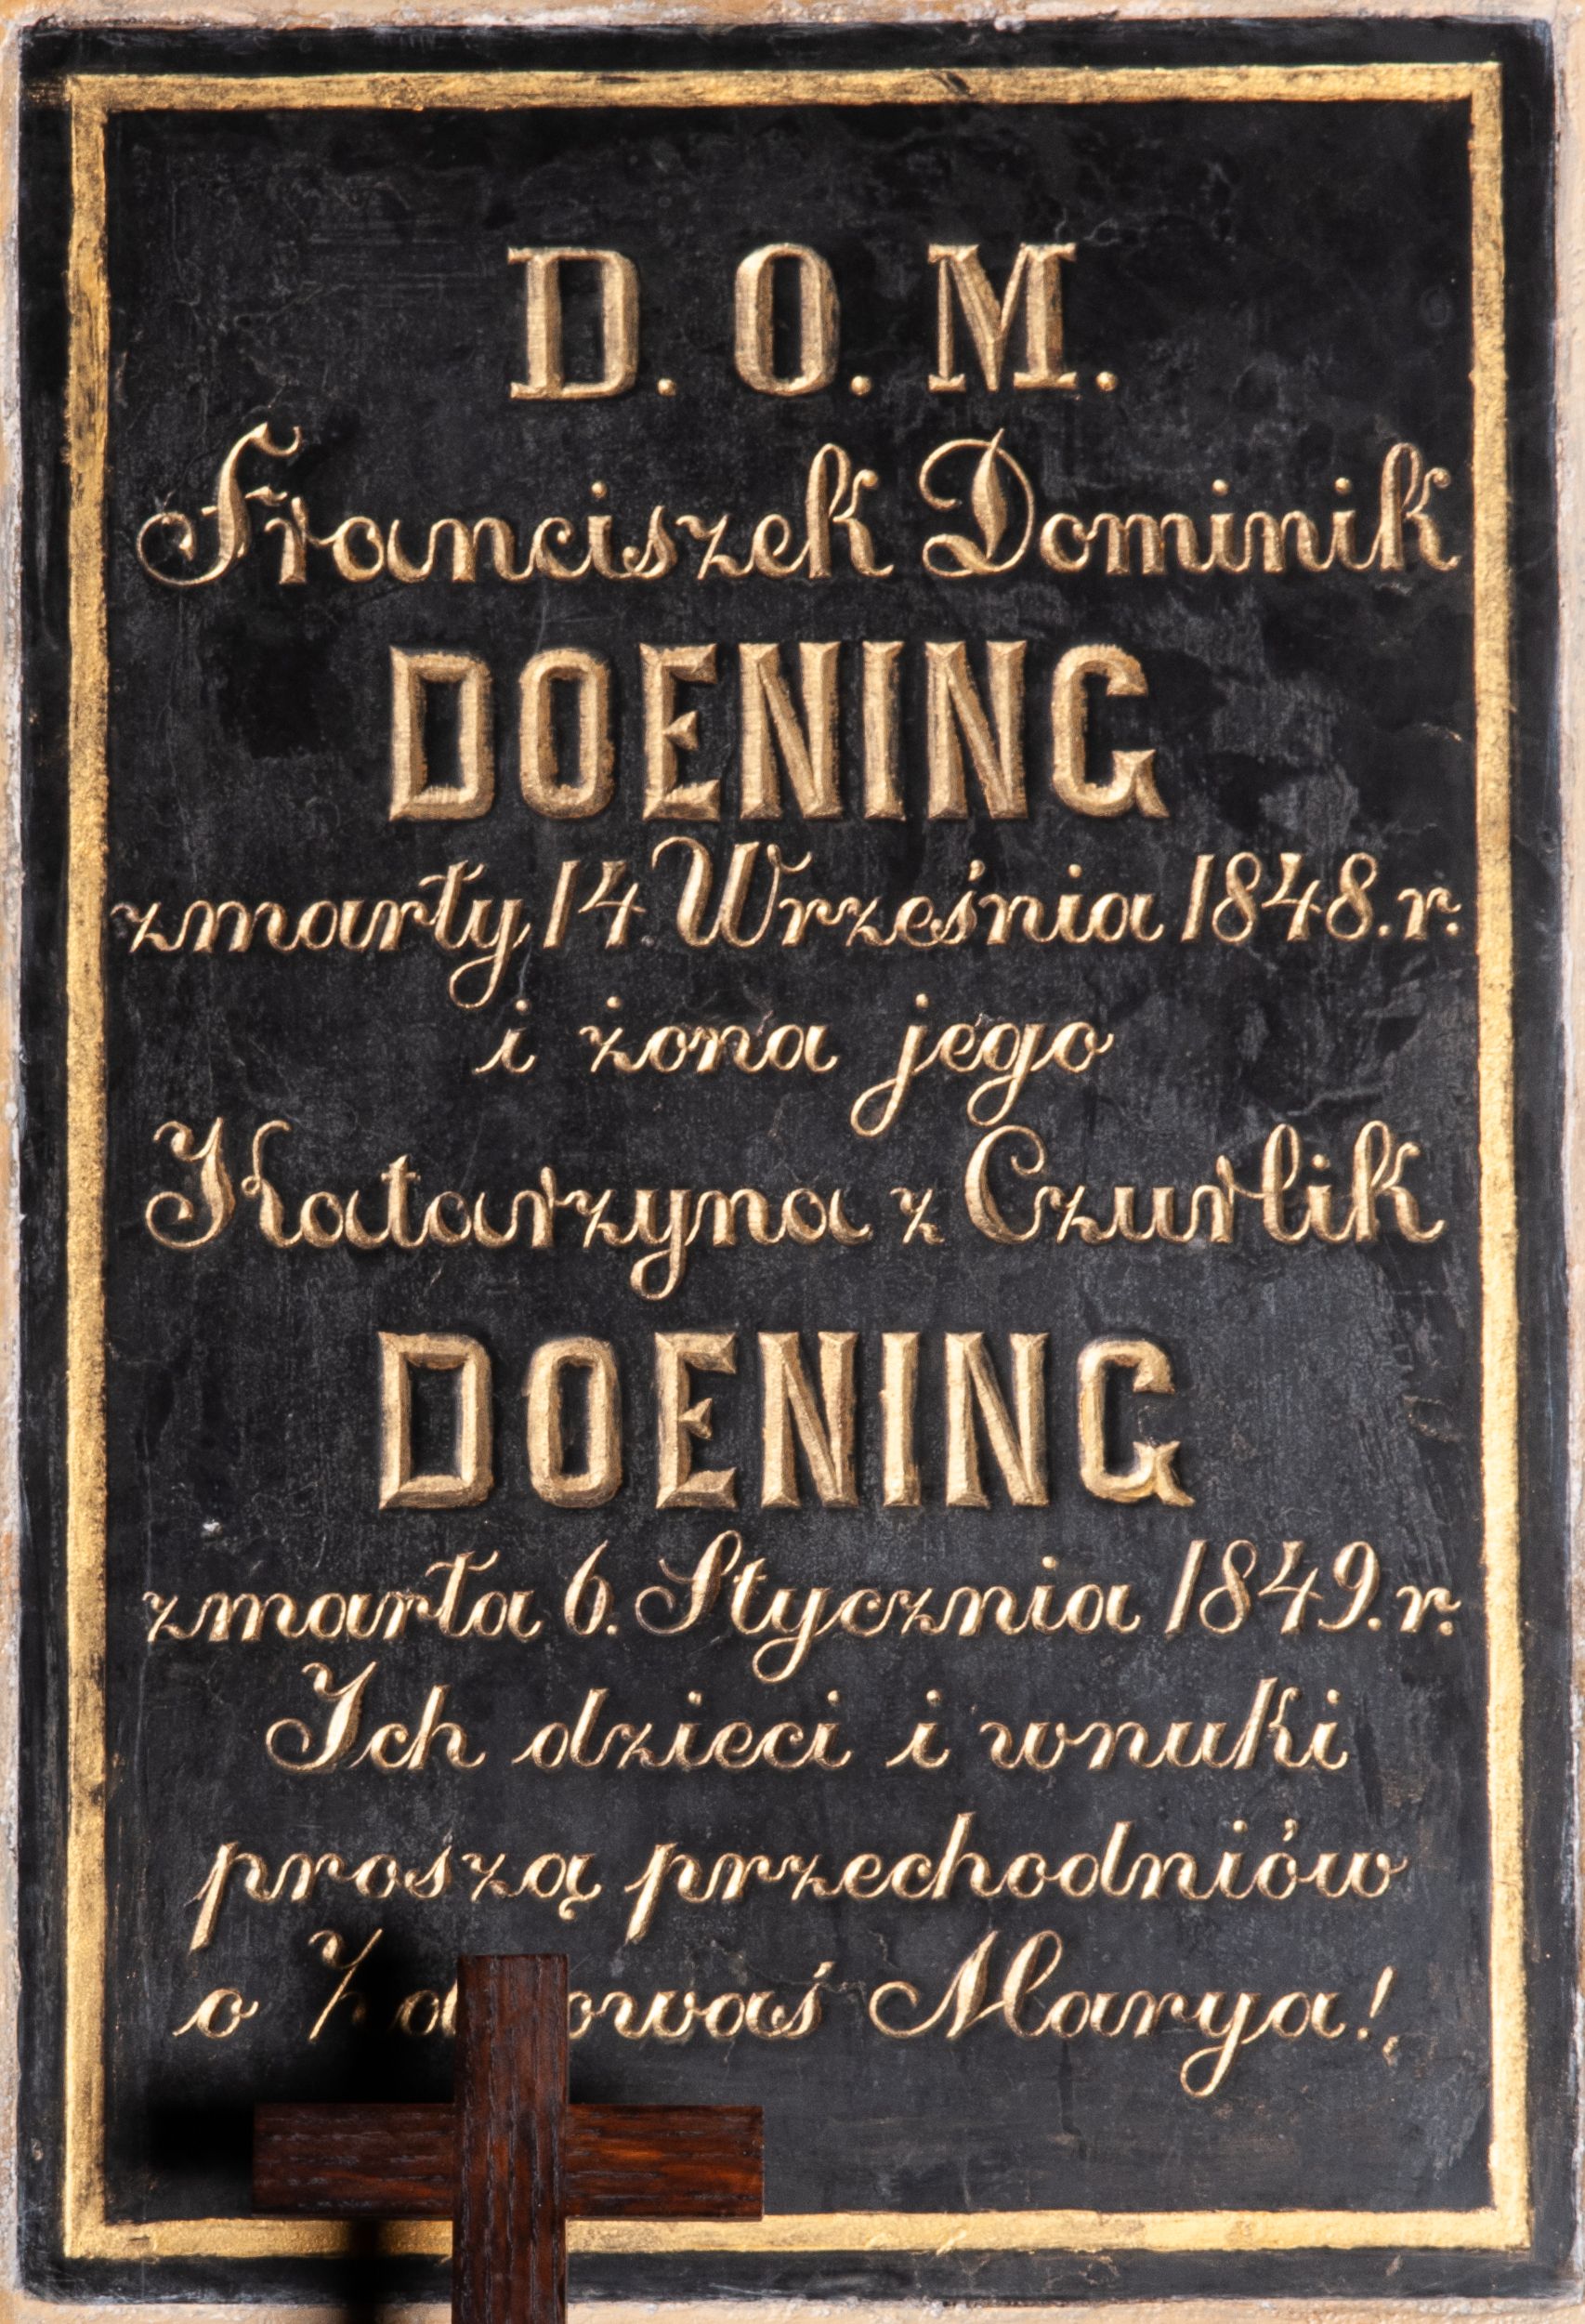 D. O. M.
Franciszek Dominik
DOENING
zmarły 14. Września 1848. r.
i żona jego
Katarzyna z Czurlik
DOENING
zmarła 6. Stycznia 1849. r.
Ich dzieci i wnuki
proszą przechodniów
o Zdrowaś Marya!